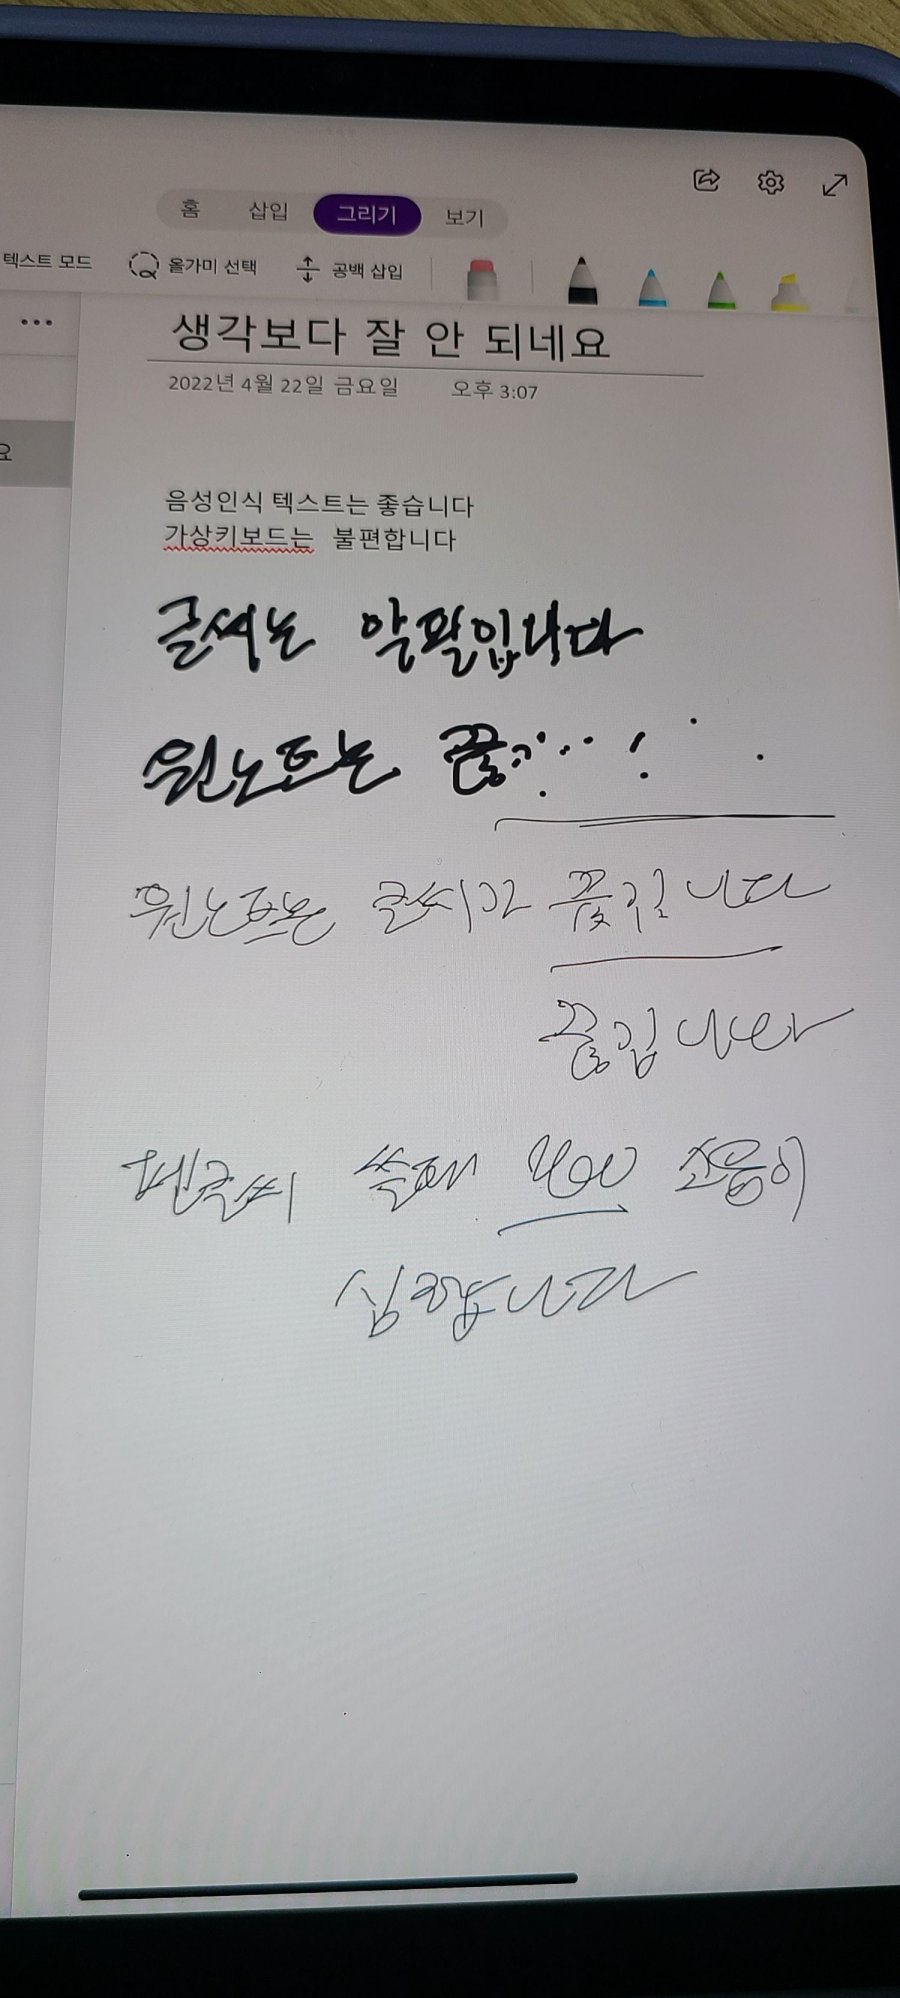 홈 삽입 그리기 보기
텍스트 모드 올가미 선택 공백 삽입
생각보다 잘 안 되네요
2022년 4월 22일 금요일 오후 3:07
요
음성인식 텍스트는 좋습니다
가상키보드는 불편합니다
글씨는 악필입니다
원노트는 끊기
원노트는 글씨가 끊깁니다
끊깁니다
펜글씨 쓸때 소음이
심합니다